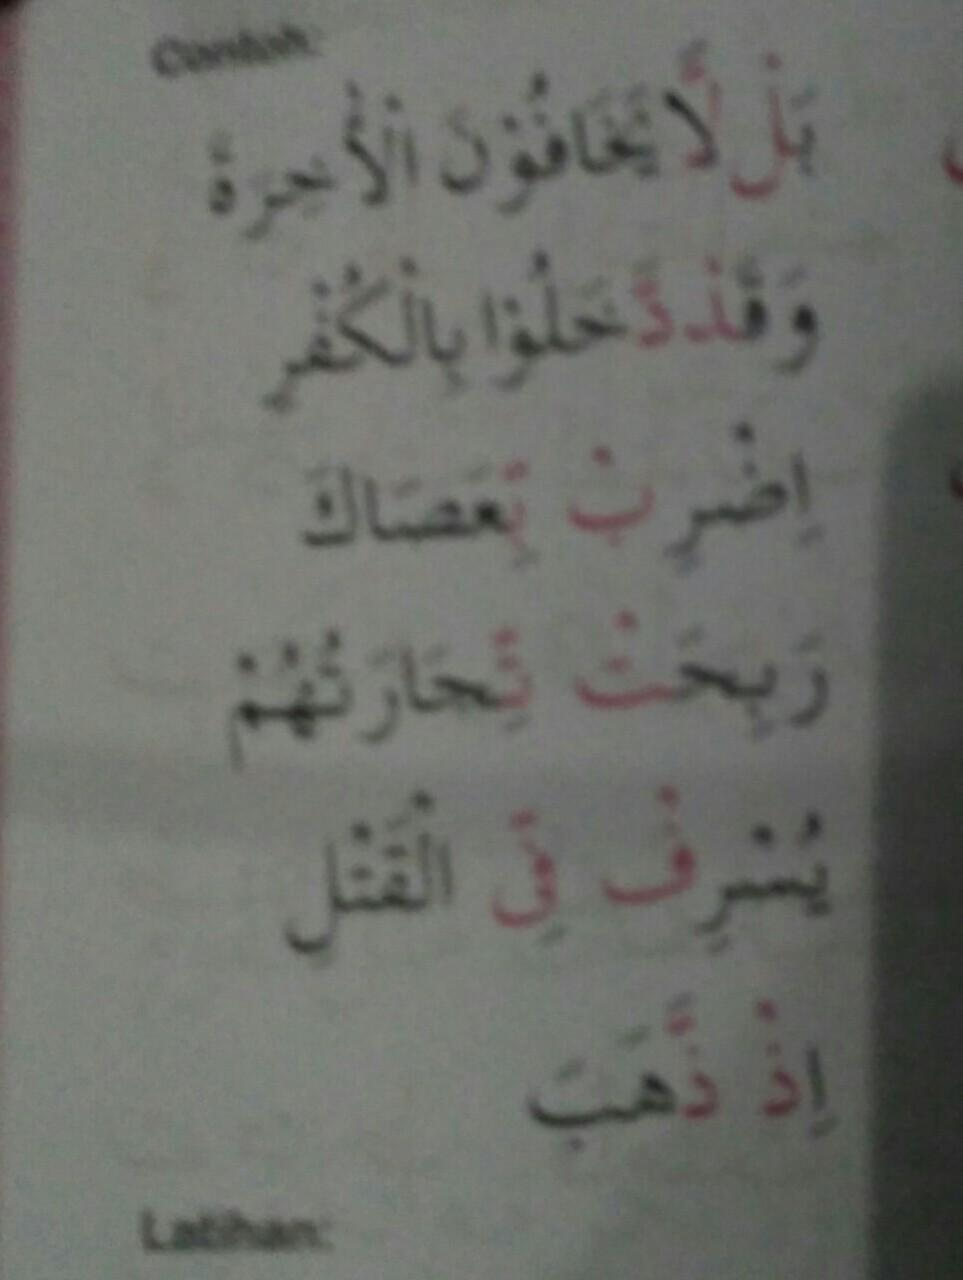 Contoh:
بَلْ لَّا يَخَافُوْنَ الْأٰخِرَةَ
وَقَدْ دَّخَلُوْا بِالْكُفْرِ
اِضْرِبْ بِّعَصَاكَ
رَبِحَتْ تِّجَارَتُهُمْ
يُسْرِفْ فِّى الْقَتْلِ
اِذْ ذَّهَبَ
Latihan: